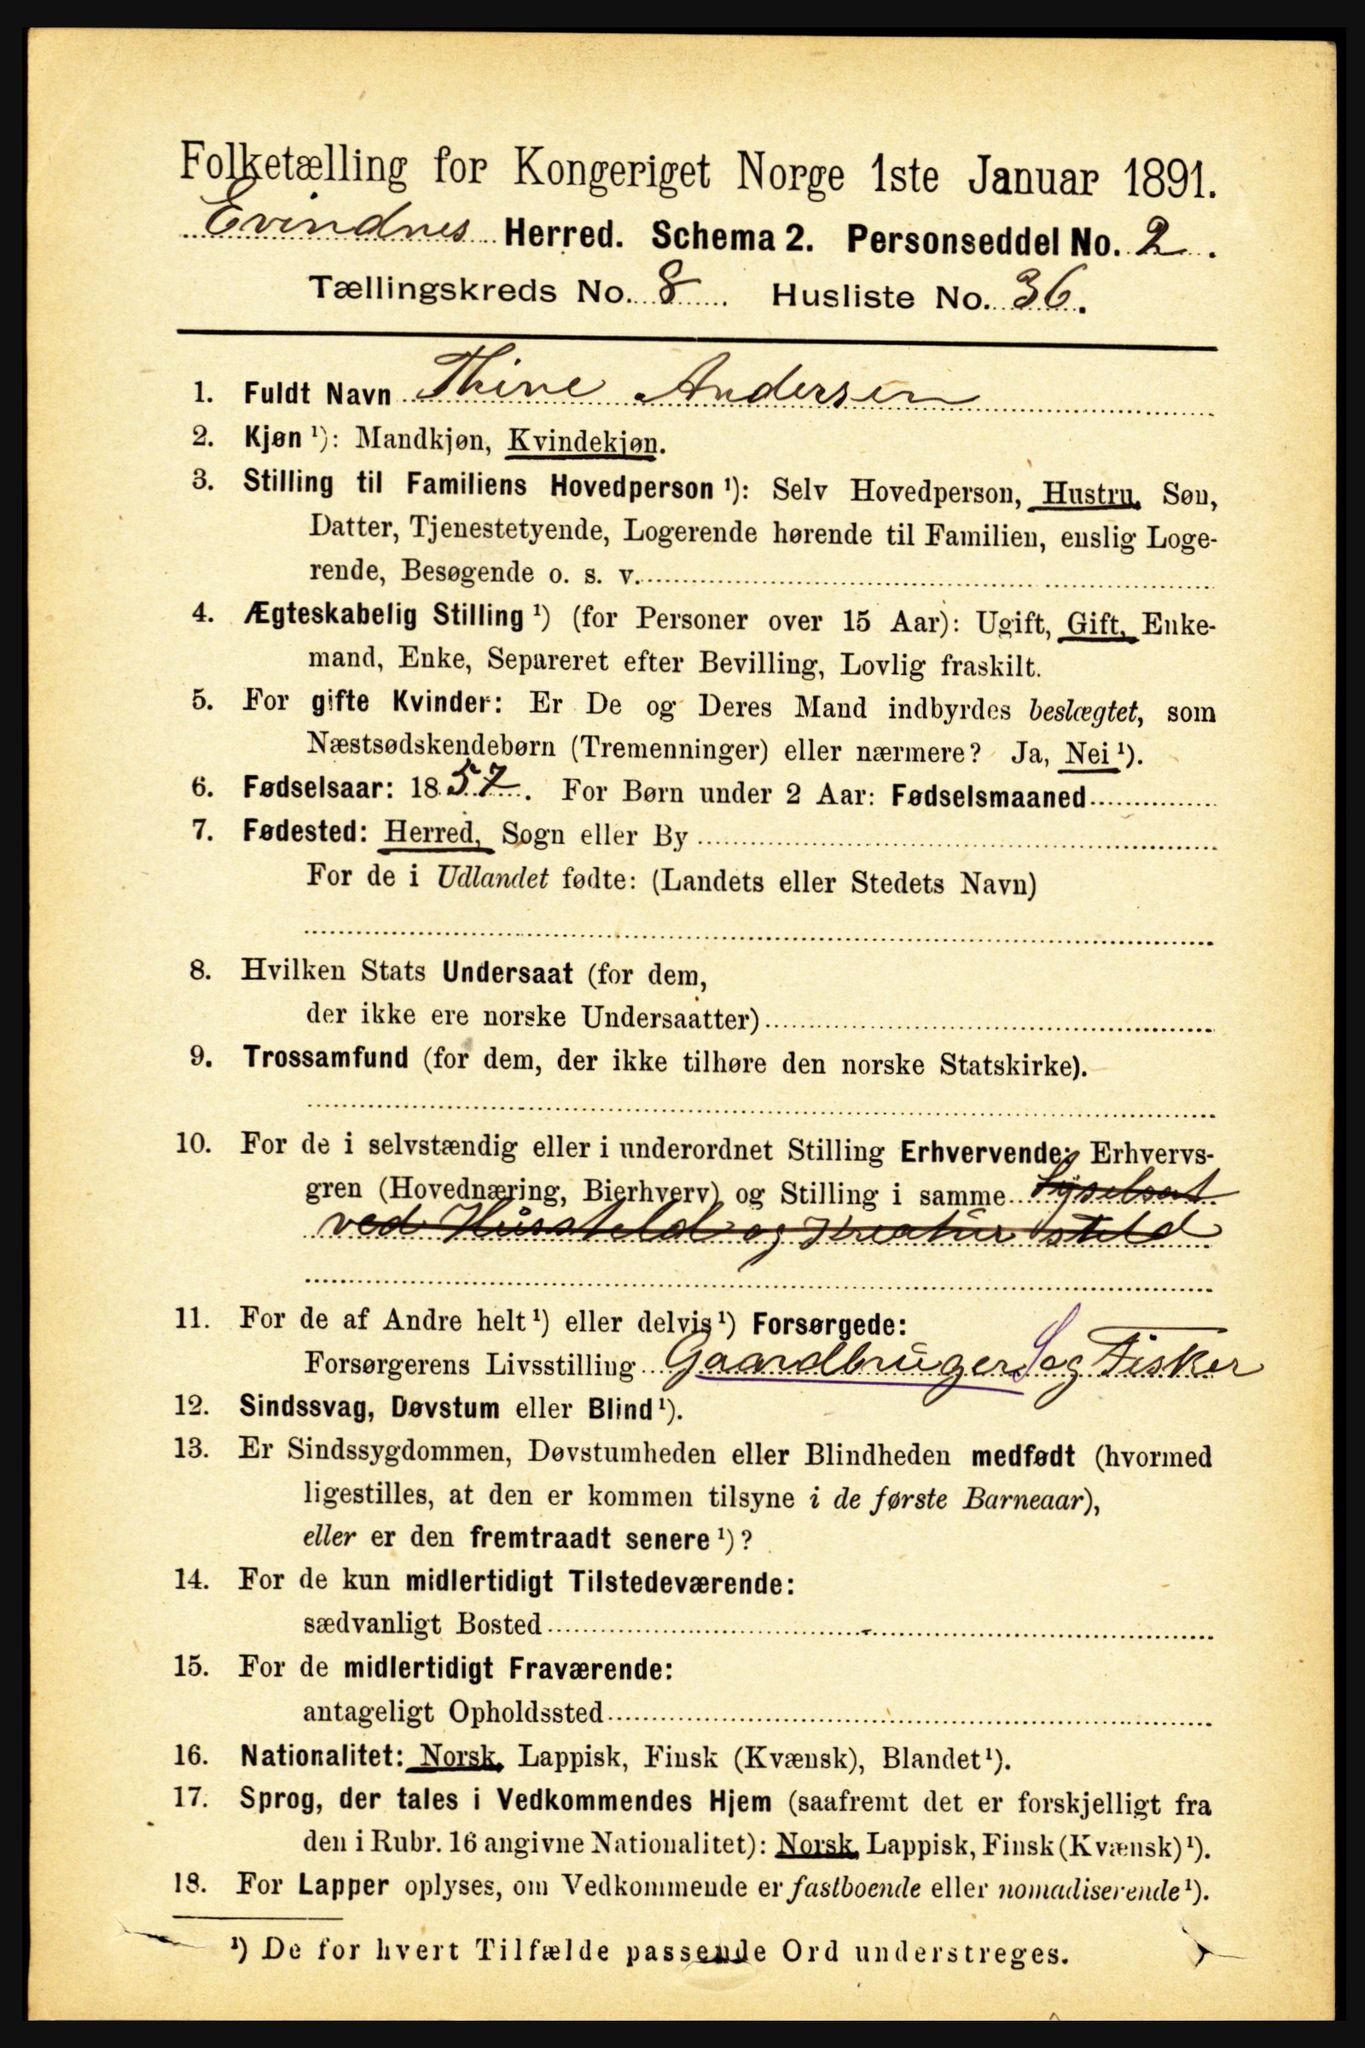 Folketælling for Kongeriget Norge 1ste Januar 1891.
Evindnes Herred. Schema 2. Personseddel No. 2.
Tællingskreds No. 8. Husliste No. 36.
1. Fuldt Navn Thine Andersen
2. Kjøn ¹): Mandkjøn, Kvindekjøn.
3. Stilling til Familiens Hovedperson ¹): Selv Hovedperson, Hustru, Søn,
Datter, Tjenestetyende, Logerende hørende til Familien, enslig Loge-
rende, Besøgende o. s. v.
4. Ægteskabelig Stilling ¹) (for Personer over 15 Aar): Ugift, Gift, Enke-
mand, Enke, Separeret efter Bevilling, Lovlig fraskilt.
5. For gifte Kvinder: Er De og Deres Mand indbyrdes beslægtet, som
Næstsødskendebørn (Tremenninger) eller nærmere? Ja, Nei ¹).
6. Fødselsaar: 1857. For Børn under 2 Aar: Fødselsmaaned
7. Fødested: Herred, Sogn eller By
For de i Udlandet fødte: (Landets eller Stedets Navn)
8. Hvilken Stats Undersaat (for dem,
der ikke ere norske Undersaatter)
9. Trossamfund (for dem, der ikke tilhøre den norske Statskirke).
10. For de i selvstændig eller i underordnet Stilling Erhvervende: Erhvervs-
gren (Hovednæring, Bierhverv) og Stilling i samme Sysselsat
ved Hussteld og Kreatursteld
11. For de af Andre helt ¹) eller delvis ¹) Forsørgede:
Forsørgerens Livsstilling Gaardbruger S og Fisker
12. Sindssvag, Døvstum eller Blind ¹).
13. Er Sindssygdommen, Døvstumheden eller Blindheden medfødt (hvormed
ligestilles, at den er kommen tilsyne i de første Barneaar),
eller er den fremtraadt senere ¹)?
14. For de kun midlertidigt Tilstedeværende:
sædvanligt Bosted
15. For de midlertidigt Fraværende:
antageligt Opholdssted
16. Nationalitet: Norsk, Lappisk, Finsk (Kvænsk), Blandet ¹).
17. Sprog, der tales i Vedkommendes Hjem (saafremt det er forskjelligt fra
den i Rubr. 16 angivne Nationalitet): Norsk, Lappisk, Finsk (Kvænsk) ¹).
18. For Lapper oplyses, om Vedkommende er fastboende eller nomadiserende ¹).
¹) De for hvert Tilfælde passende Ord understreges.